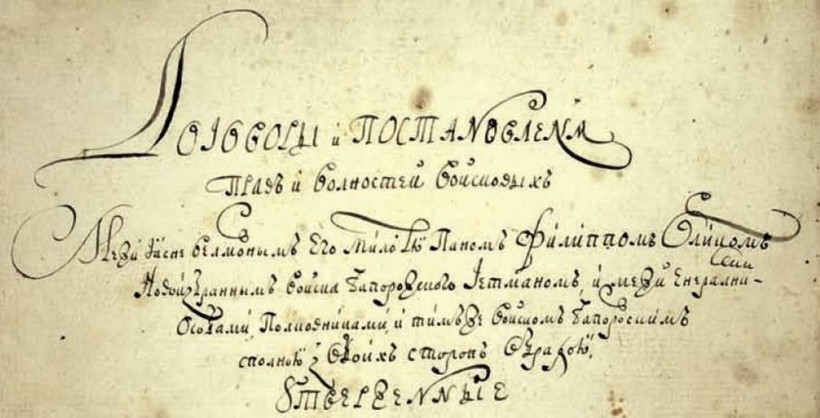 Договоры и Постановленѧ
Правъ и волностей войсковыхъ
Межи Ясне велможнымъ Его Милостю Паномъ Филиппомъ Орликомъ
Новоизбраннымъ войска Запорожского Гетманомъ, и межи Енерални-
ми
Особами Полковниками, и тимъже войскомъ Запорожскимъ
сполною з обойхъ сторонъ обрадою,
Утверженные